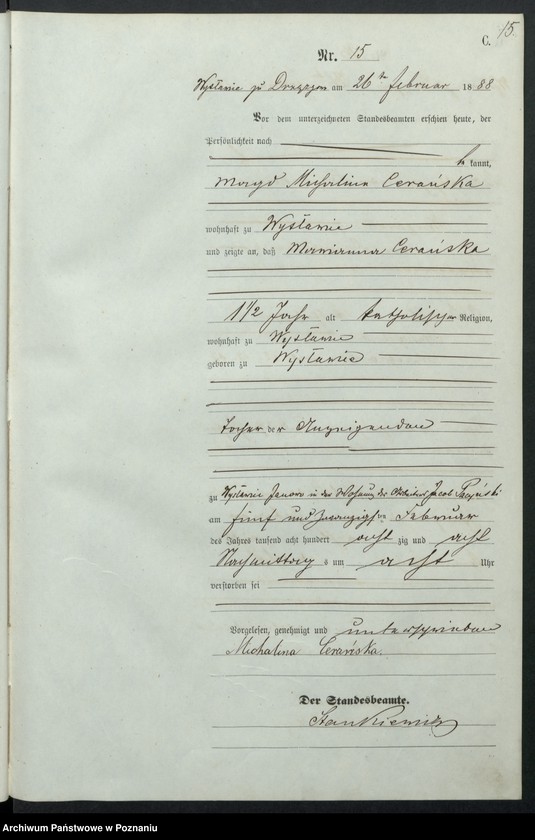 15
C.
Nr. 15
Wysławie zu am 26ten Februar 1888
Vor dem unterzeichneten Standesbeamten erschien heute, der
Persönlichkeit nach
kannt,
Magd Michalina Cerańska
wohnhaft zu Wysławie
und zeigte an, daß Marianna Cerańska
1 1/2 Jahr alt katholischer Religion,
wohnhaft zu Wysławie
geboren zu Wysławie
Tochter der Anzeigenden
zu Wysławie Janowo in der Wohnung des Arbeiters Jacob
am fünf und zwanzigsten Februar
des Jahres tausend acht hundert acht zig und acht
Nachmittag s um acht Uhr
verstorben sei
Vorgelesen, genehmigt und unterschrieben
Michalina Cerańska.
Der Standesbeamte.
Stankiewicz
Archiwum Państwowe w Poznaniu